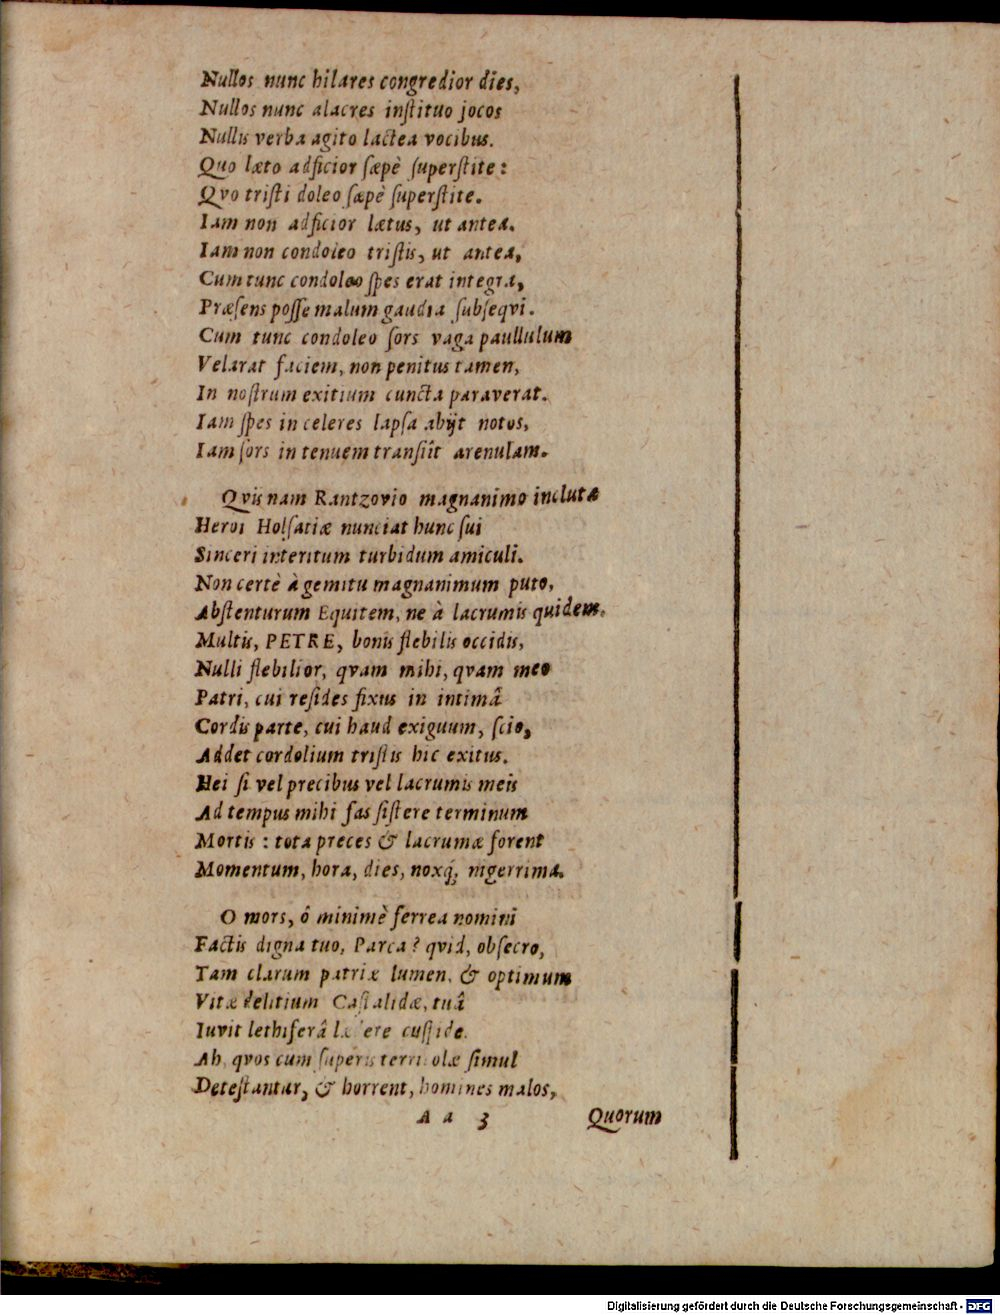 Nullos nunc hilares congredior dies,
Nullos nunc alacres instituo jocos
Nullis verba agito lactea vocibus.
Quo læto adficior sæpè superstite:
Qvo tristi doleo sæpè superstite.
Iam non adficior lætus, ut antea.
Iam non condoleo tristis, ut antea,
Cum tunc condoleo spes erat integra,
Præsens posse malum gaudia subseqvi.
Cum tunc condoleo sors vaga paullulum
Velarat faciem, non penitus tamen,
In nostrum exitium cuncta paraverat.
Iam spes in celeres lapsa abijt notos,
Iam sors in tenuem transiît arenulam.
Qvis nam Rantzovio magnanimo inclutæ
Heroi Holsatiæ nunciat hunc sui
Sinceri interitum turbidum amiculi.
Non certè à gemitu magnanimum puto,
Abstenturum Equitem, ne à lacrumis quidem.
Multis, PETRE, bonis flebilis occidis,
Nulli flebilior, qvam mihi, qvam meo
Patri, cui resides fixus in intimâ
Cordis parte, cui haud exiguum, scio,
Addet cordolium tristis hic exitus.
Hei si vel precibus vel lacrumis meis
Ad tempus mihi fas sistere terminum
Mortis: tota preces & lacrumæ forent
Momentum, hora, dies, noxq́; nigerrima.
O mors, ô minimè ferrea nomini
Factis digna tuo, Parca? qvid, obsecro,
Tam clarum patriæ lumen, & optimum
Vitæ delitium Castalidæ, tuâ
Iuvit lethiferâ lædere cuspide.
Ah, qvos cum superis terricolæ simul
Detestantur, & horrent, homines malos,
A a 3 Quorum
Digitalisierung gefördert durch die Deutsche Forschungsgemeinschaft - DFG